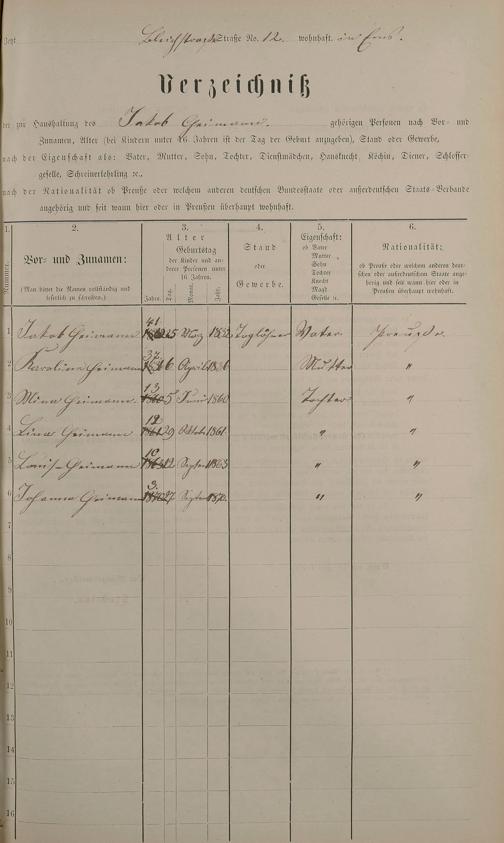 Jetzt Bleichstraße Straße No. 12. wohnhaft. in Ems.
Verzeichniß
der zur Haushaltung des Jakob Heimann. gehörigen Personen nach Vor- und
Zunamen, Alter (bei Kindern unter 16 Jahren ist der Tag der Geburt anzugeben), Stand oder Gewerbe,
nach der Eigenschaft als: Vater, Mutter, Sohn, Tochter, Dienstmädchen, Hausknecht, Köchin, Diener, Schlosser-
geselle, Schreinerlehrling ꝛc.,
nach der Nationalität ob Preuße oder welchen anderen deutschen Bundesstaate oder außerdeutschen Staats-Verbande
angehörig und seit wann hier oder in Preußen überhaupt wohnhaft.
1. 2. 3. 4. 5. 6.
Nummer.
Vor- und Zunamen:
(Man bittet die Namen vollständig und
leserlich zu schreiben.)
Alter
Geburtstag
der Kinder und an-
derer Personen unter
16 Jahren.
Jahre. Tag. Monat. Jahr.
Stand
oder
Gewerbe.
Eigenschaft:
ob Vater
Mutter
Sohn
Tochter
Knecht
Magd
Geselle ꝛc.
Nationalität:
ob Preuße oder welchem anderen deut-
schen oder außerdeutschen Staate ange-
hörig und seit wann hier oder in
Preußen überhaupt wohnhaft.
1 Jakob Heimann 41 25 März 1832 Taglöhner Vater Preuße
2 Karolina Heimann 37 6 April 1836 Mutter "
3 Mina Heimann. 13 5 Juni 1860 Tochter "
4 Lina Heimann 12 29 Oktob 1861 " "
5 Louise Heimann 10 12 Septem 1863 " "
6 Johanna Heimann 3. 27 Septem 1870. " "
7
8
9
10
11
12
13
14
15
16